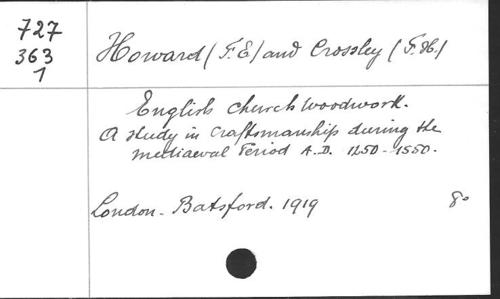 727
363
1
Howard (F.E.) and Crossley (F.H.)
English church woodwork.
A study in craftsmanship during the
mediaeval Period A.D. 1250-1550.
London - Batsford. 1919
8º